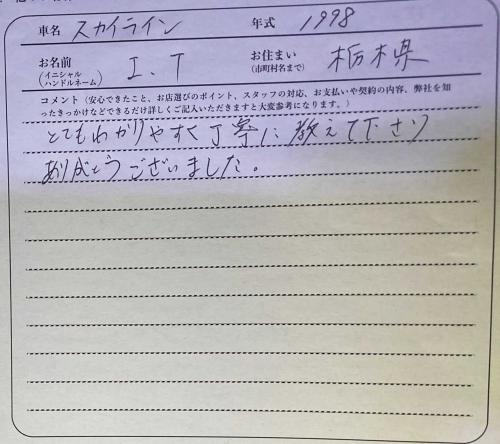 車名 スカイライン 年式 1998
お名前 (イニシャル ハンドルネーム) I.T お住まい (市町村名まで) 栃木県
コメント (安心できたこと、お店選びのポイント、スタッフの対応、お支払いや契約の内容、弊社を知
ったきっかけなどできるだけ詳しくご記入いただきますと大変参考になります。)
とてもわかりやすく丁寧に教えて下さり
ありがとうございました。